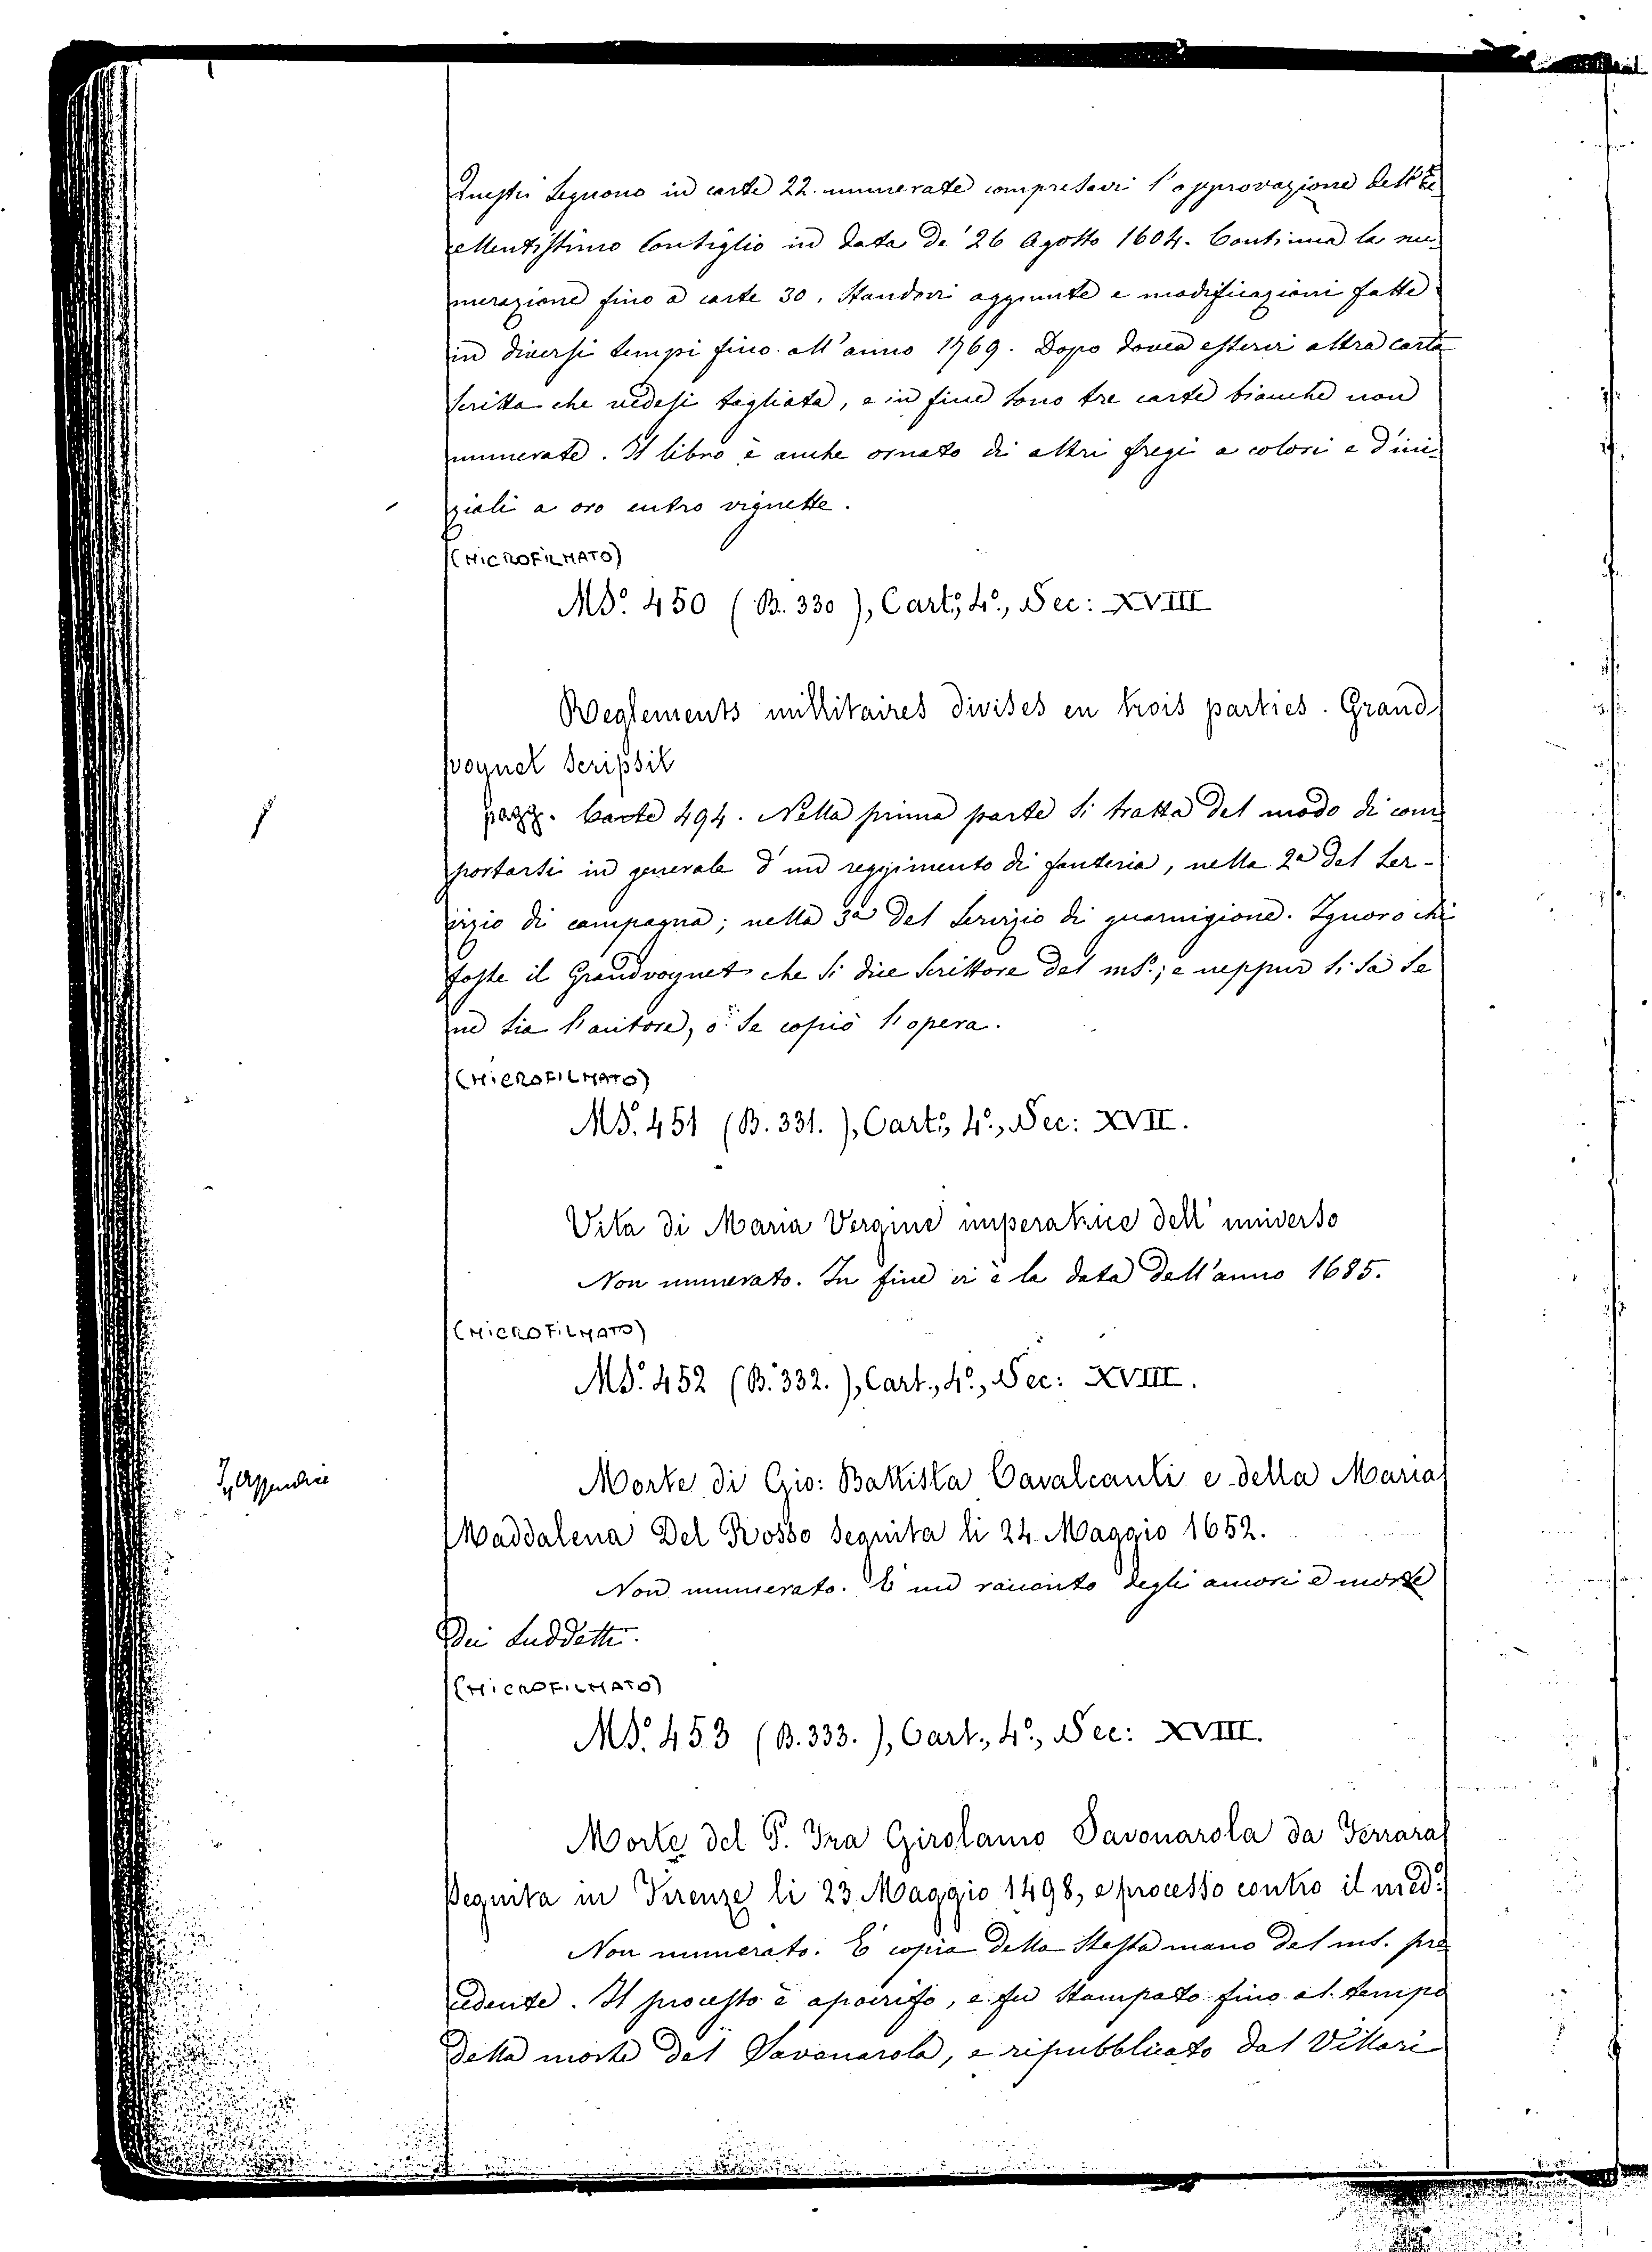 Questi seguono in carte 22. numerate compresavi l'approvazione dell'Ec
cellentissimo Consiglio in data de' 26 Agosto 1604. Continua la nu-
merazione fino a carte 30, standovi aggiunte e modificazioni fatte
in diversi tempi fino all'anno 1769. Dopo dovea esservi altra carta
scritta che vedesi tagliata, e in fine sono tre carte bianche non
numerate. Il libro è anche ornato di altri fregi a colori e d'ini-
ziali a oro entro vignette.
(MICROFILMATO)
MS. 450 (B. 330), Cart., 4°., Sec: XVIII
Reglements millitaires divisés en trois parties. Grand
voynet scripsit
pagg. Carte 494. Nella prima parte si tratta del modo di com-
portarsi in generale d'un reggimento di fanteria, nella 2a del ser-
vizio di campagna; nella 3a del servizio di guarnigione. Ignoro chi
fosse il Grandvoynet che si dice scrittore del ms.; e neppur si sà se
ne sia l'autore, o se copiò l'opera.
(MICROFILMATO)
MS. 451 (B. 331.), Cart., 4°., Sec: XVII.
Vita di Maria Vergine imperatrice dell'universo
Non numerato. In fine vi è la data dell'anno 1685.
(MICROFILMATO)
MS. 452 (B. 332.), Cart., 4°., Sec: XVIII.
In Appendice
Morte di Gio: Battista Cavalcanti e della Maria
Maddalena Del Rosso seguita li 24 Maggio 1652.
Non numerato. È un racconto degli amori e morte
dei suddetti.
(MICROFILMATO)
MS. 453 (B. 333.), Cart., 4°., Sec: XVIII.
Morte del P. Fra Girolamo Savonarola da Ferrara
seguita in Firenze li 23 Maggio 1498, e processo contro il med.°
Non numerato. È copia della stessa mano del ms. pre
cedente. Il processo è apocrifo, e fu stampato fino al tempo
della morte del Savonarola, e ripubblicato dal Villari